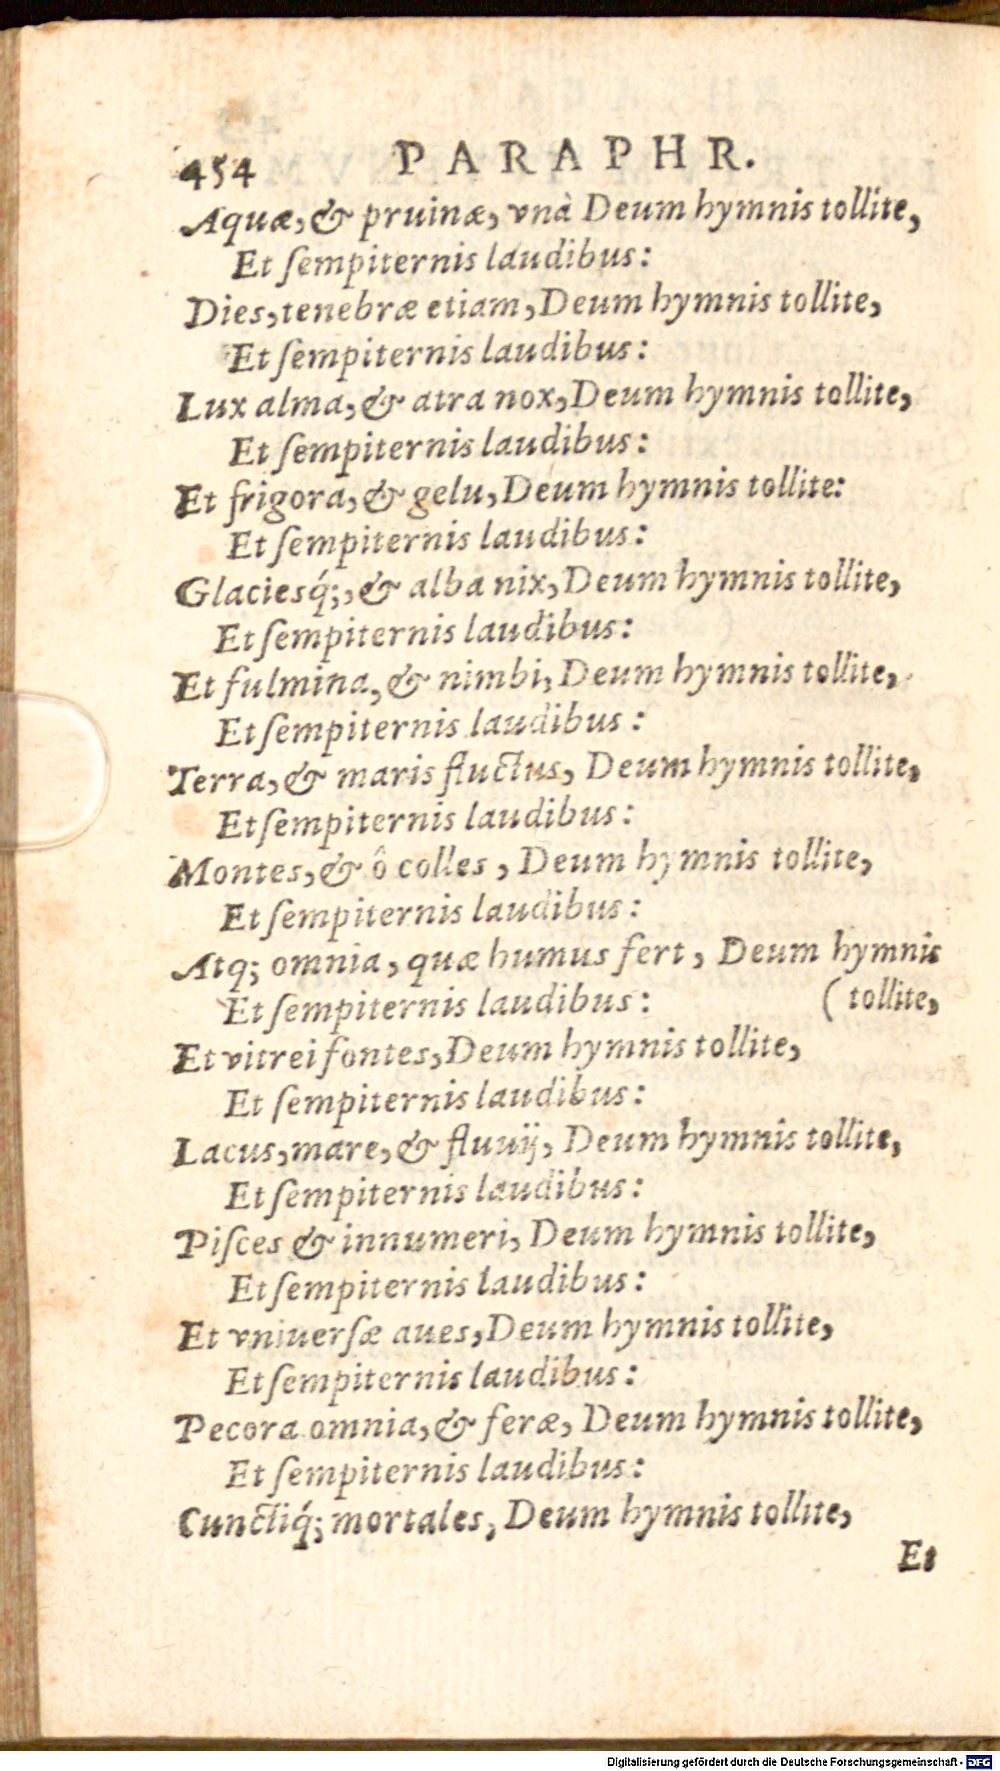 454 PARAPHR.
Aquæ, & pruinæ, vnà Deum hymnis tollite,
Et ſempiternis laudibus:
Dies, tenebræ etiam, Deum hymnis tollite,
Et ſempiternis laudibus:
Lux alma, & atra nox, Deum hymnis tollite,
Et ſempiternis laudibus:
Et frigora, & gelu, Deum hymnis tollite:
Et ſempiternis laudibus:
Glaciesq́;, & alba nix, Deum hymnis tollite,
Et ſempiternis laudibus:
Et fulmina, & nimbi, Deum hymnis tollite,
Et ſempiternis laudibus:
Terra, & maris fluctus, Deum hymnis tollite,
Et ſempiternis laudibus:
Montes, & ô colles, Deum hymnis tollite,
Et ſempiternis laudibus:
Atq; omnia, quæ humus fert, Deum hymnis
Et ſempiternis laudibus: (tollite,
Et vitrei fontes, Deum hymnis tollite,
Et ſempiternis laudibus:
Lacus, mare, & fluuij, Deum hymnis tollite,
Et ſempiternis laudibus:
Piſces & innumeri, Deum hymnis tollite,
Et ſempiternis laudibus:
Et vniuerſæ aues, Deum hymnis tollite,
Et ſempiternis laudibus:
Pecora omnia, & feræ, Deum hymnis tollite,
Et ſempiternis laudibus:
Cunctiq́; mortales, Deum hymnis tollite,
Et
Digitalisierung gefördert durch die Deutsche Forschungsgemeinschaft - DFG